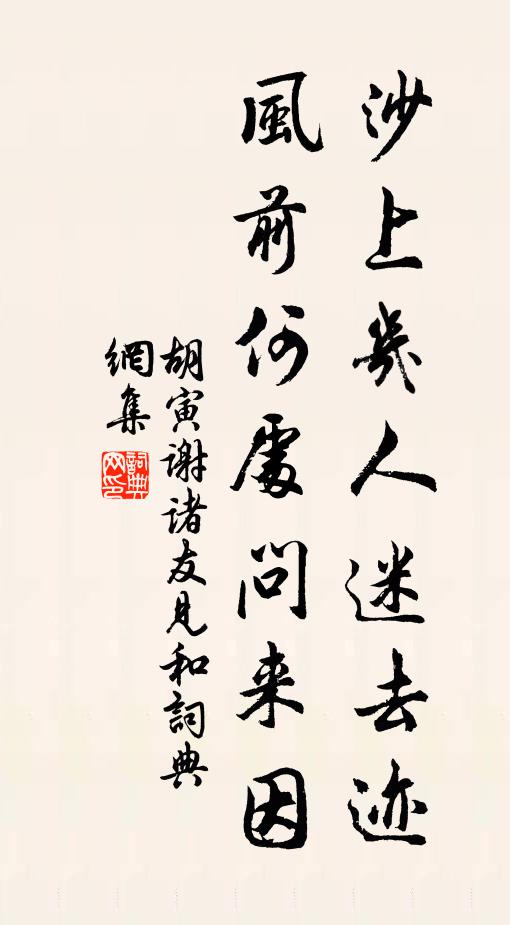 沙上幾人迷去迹
風前何處問来因
胡寅謝诸友見和詞典
網集
詞典
网印